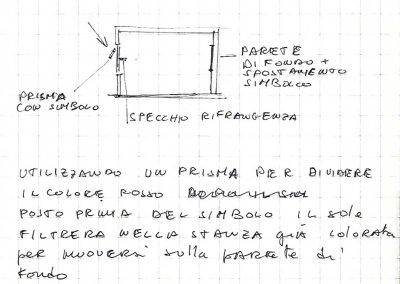 PARETE
DI FONDO +
SPOSTAMENTO
SIMBOLO
PRISMA
CON SIMBOLO
SPECCHIO RIFRANGENZA
UTILIZZANDO UN PRISMA PER DIVIDERE
IL COLORE ROSSO
POSTO PRIMA DEL SIMBOLO IL SOLE
FILTRERA NELLA STANZA già COLORATA
per muoversi sulla parete di
fondo